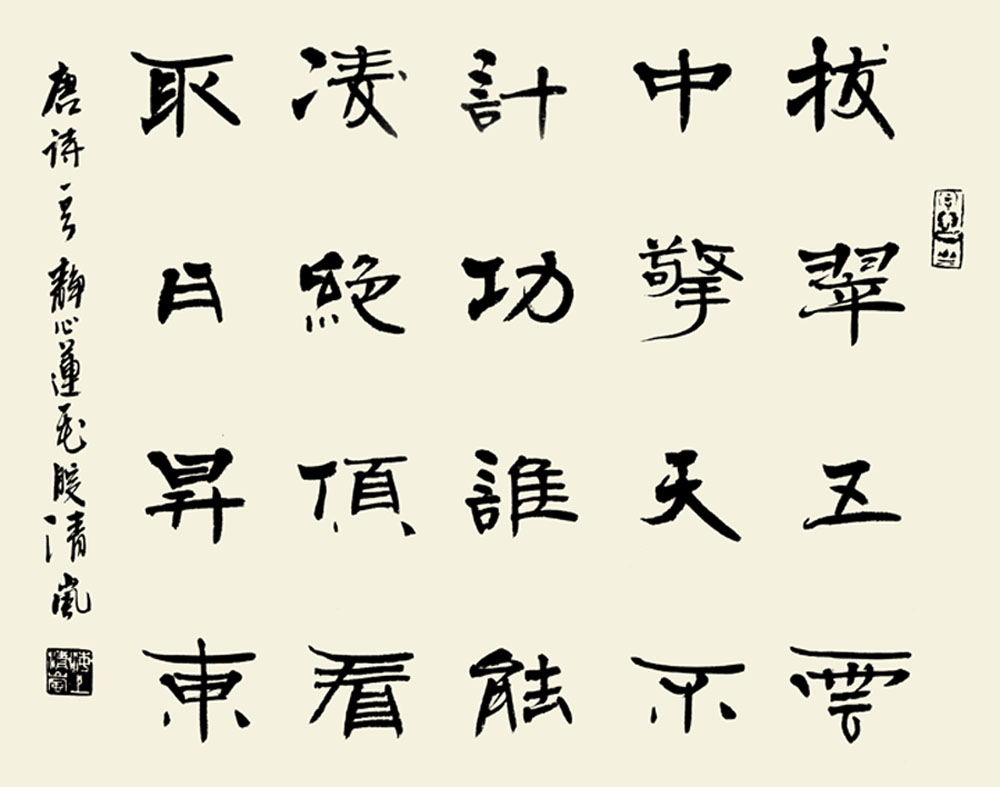 拔翠五雲
中擎天不
計功誰能
凌絕頂看
取日昇東
唐诗一首 靜心蓮花 清嵐